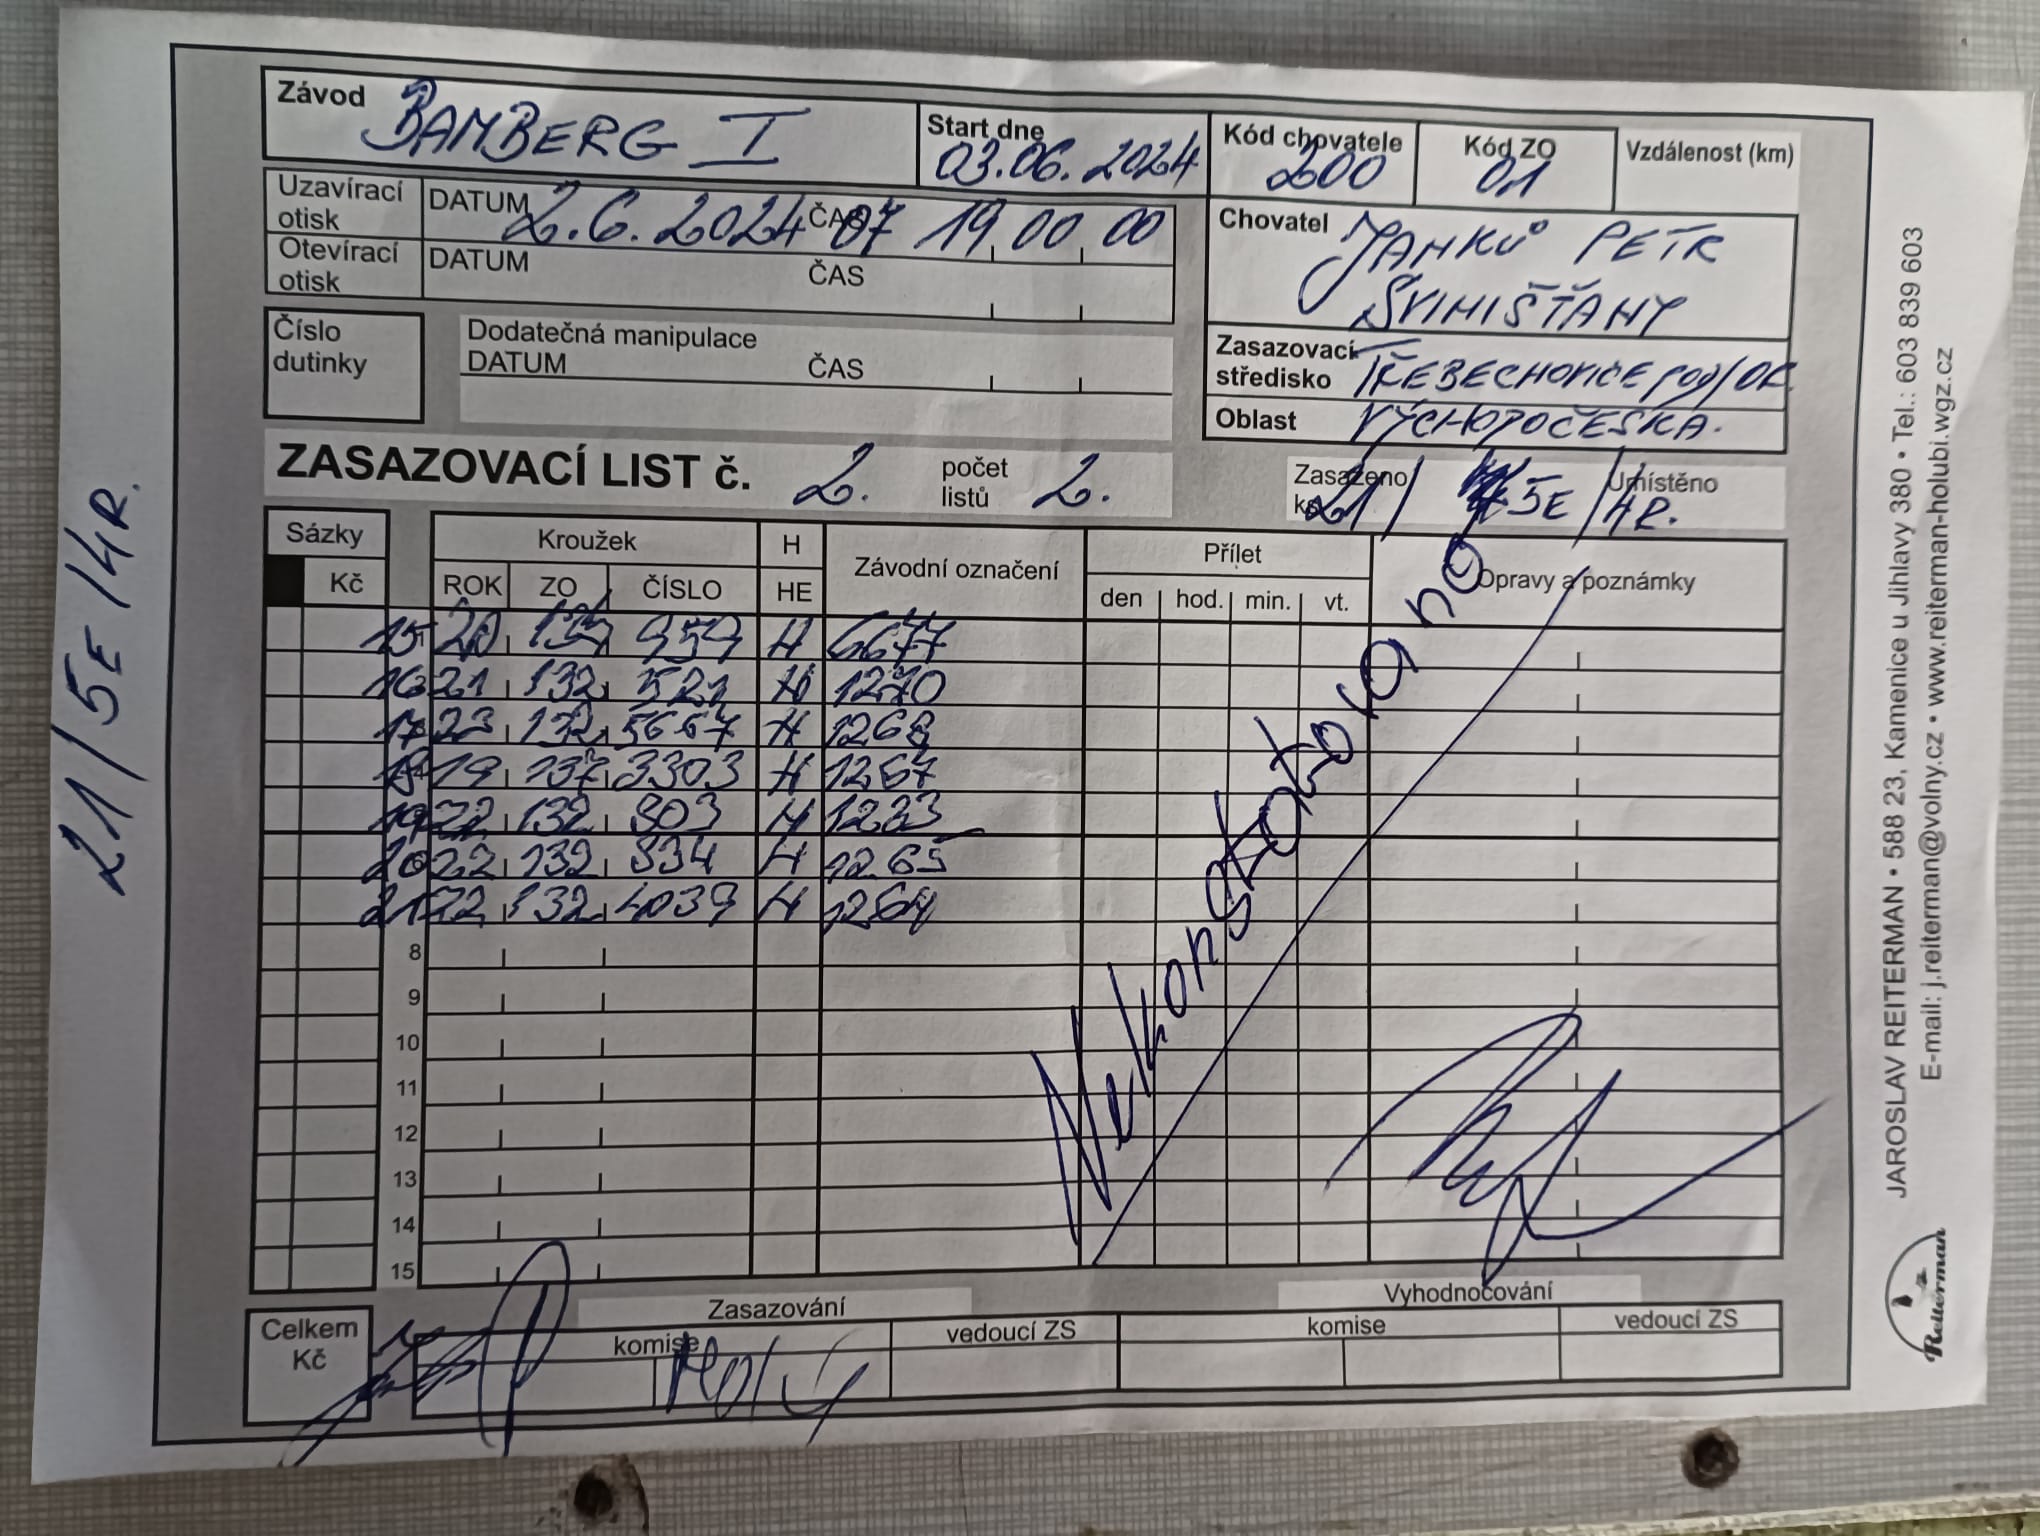 Závod BAMBERG I Start dne 03.06.2024 Kód chovatele 200 Kód ZO 01 Vzdálenost (km)
Uzavírací otisk DATUM 2.6.2024 ČAS 07 19 00 00
Otevírací otisk DATUM ČAS
Chovatel JANKŮ PETR
SVINIŠŤANY
Číslo dutinky
Dodatečná manipulace
DATUM ČAS
Zasazovací středisko TŘEBECHOVICE pod/OR.
Oblast VÝCHODOČESKÁ.
ZASAZOVACÍ LIST č. 2. počet listů 2. Zasazeno ks 21/ 5E /4R. Umístěno
Sázky Kroužek H Závodní označení Přílet Opravy a poznámky
Kč ROK ZO ČÍSLO HE den hod. min. vt.
15 20 959 H 6677
16 21 132 521 H 1270
17 23 132 5667 H 1268
19 137 3303 H 1267
19 22 132 803 H 1233
20 22 132 834 H 1265
21 22 132 4039 H 1264
8
9
10
11
12
13
14
15
Nekonstatováno
Celkem Kč
Zasazování
komise vedoucí ZS
Vyhodnocování
komise vedoucí ZS
21/5E/4R.
JAROSLAV REITERMAN • 588 23, Kamenice u Jihlavy 380 • Tel.: 603 839 603
E-mail: j.reiterman@volny.cz • www.reiterman-holubi.wgz.cz
Reiterman